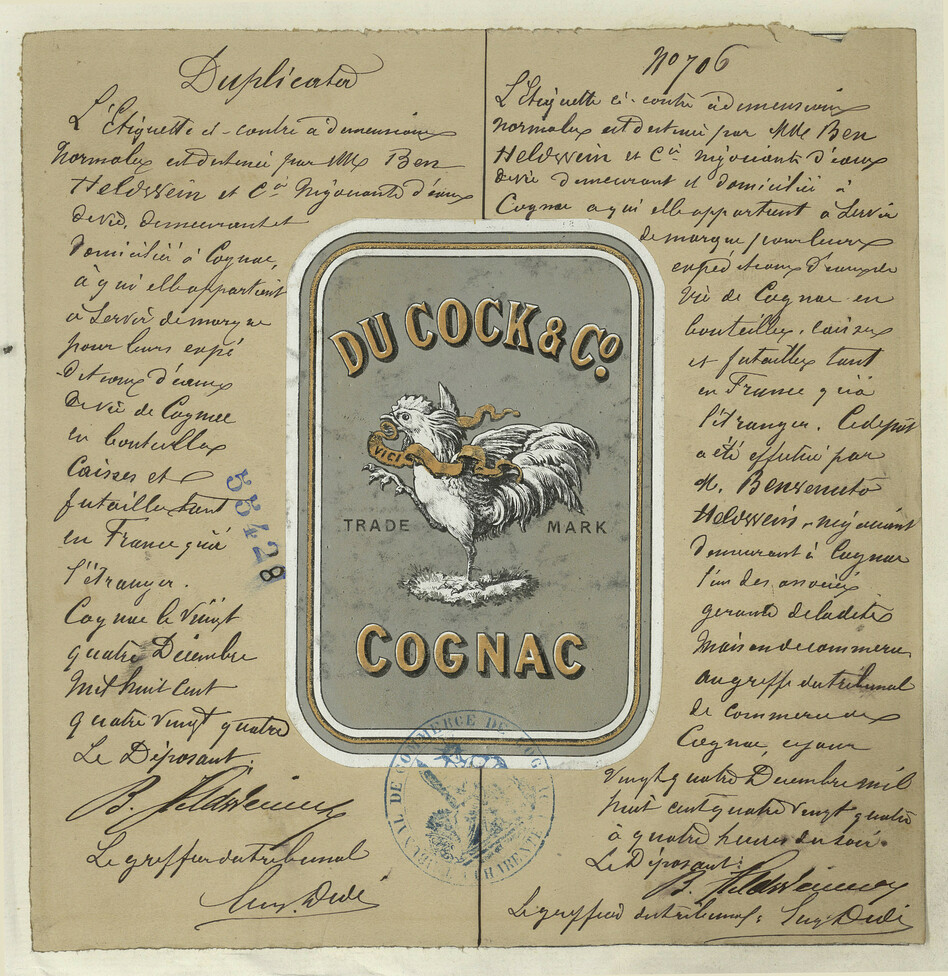 Duplicata
L'Etiquette ci-contre à dimensions
normales est destinée par MM Ben
Heldwein et Cie Négociants d'eaux
de vie, demeurant et
domicilié à Cognac,
à qui elle appartient
à Servir de marque
pour leurs expé
ditions d'eaux
de vie de Cognac
en bouteilles
Caisses et
futailles tant
en France qu'à
l'étranger.
Cognac le Vingt
quatre Décembre
mil huit cent
quatre vingt quatre
Le Déposant:
B. Heldwein
Le greffier du tribunal
55428
No 706
L'Etiquette ci-contre à dimensions
normales est destinée par MM Ben
Heldwein et Cie négociants d'eaux
de vie demeurant et domicilié à
Cognac a qui elle appartient à Servir
de marque pour leurs
expéditions d'eaux de
Vie de Cognac en
bouteilles, caisses
et futailles tant
en France qu'à
l'étranger. Ce dépôt
a été effectué par
M. Benvenuto
Heldwein, négociant
demeurant à Cognac
l'un des associés
gérants de la dite
Maison de commerce
au greffe du tribunal
de commerce de
Cognac, ce jour
Vingt quatre Décembre mil
huit cent quatre vingt quatre
à quatre heures du soir.
Le Déposant:
B. Heldwein
Le greffier du tribunal:
DU COCK & Co.
VICI
TRADE MARK
COGNAC
TRIBUNAL DE COMMERCE DE COGNAC
CHARENTE